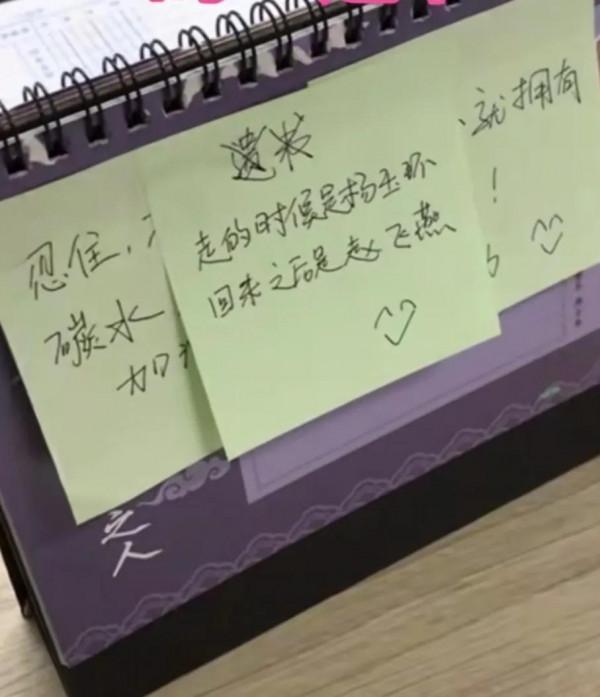 忍住,
碳水
加
遗书
走的时候是杨玉环
回来之后是赵飞燕
就拥有
!
之人